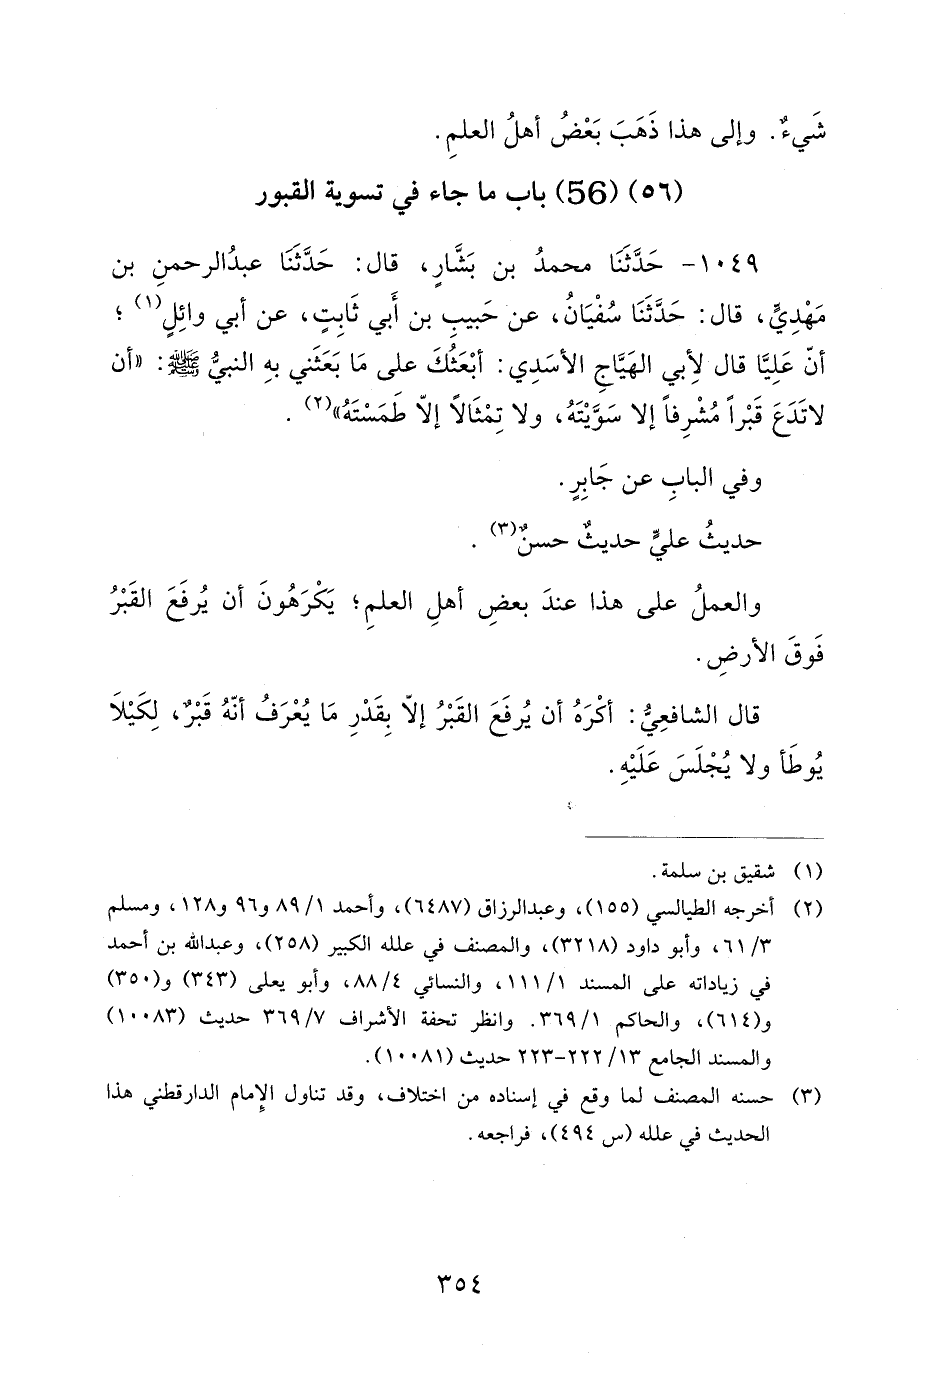 شَيءٌ. وإلى هذا ذَهَبَ بَعْضُ أهلُ العلمِ.
(٥٦) (56) باب ما جاء في تسوية القبور
١٠٤٩- حَدَّثَنَا محمدُ بن بَشَّارٍ، قال: حَدَّثَنَا عبدُالرحمنِ بن
مَهْدِيٍّ، قال: حَدَّثَنَا سُفْيَانُ، عن حَبيبِ بن أَبي ثَابِتٍ، عن أبي وائِلٍ(١)؛
أنّ عَلِيًّا قال لِأبي الهَيَّاجِ الأسَدِي: أبْعَثُكَ على مَا بَعَثَني بهِ النبيُّ ﷺ: «أن
لاتَدَعَ قَبْراً مُشْرِفاً إلا سَوَّيْتَهُ، ولا تِمْثَالاً إلاّ طَمَسْتَهُ»(٢).
وفي البابِ عن جَابِرٍ.
حديثُ عليٍّ حديثٌ حسنٌ(٣).
والعملُ على هذا عندَ بعضِ أهلِ العلمِ؛ يَكْرَهُونَ أن يُرفَعَ القَبْرُ
فَوقَ الأرضِ.
قال الشافعِيُّ: أكْرَهُ أن يُرفَعَ القَبْرُ إلاّ بِقَدْرِ مَا يُعْرَفُ أنّهُ قَبْرٌ، لِكَيْلَا
يُوطَأ ولا يُجْلَسَ عَلَيْهِ.
(١) شقيق بن سلمة.
(٢) أخرجه الطيالسي (١٥٥)، وعبدالرزاق (٦٤٨٧)، وأحمد ١/ ٨٩ و٩٦ و١٢٨، ومسلم
٣/ ٦١، وأبو داود (٣٢١٨)، والمصنف في علله الكبير (٢٥٨)، وعبدالله بن أحمد
في زياداته على المسند ١/ ١١١، والنسائي ٤/ ٨٨، وأبو يعلى (٣٤٣) و(٣٥٠)
و(٦١٤)، والحاكم ١/ ٣٦٩. وانظر تحفة الأشراف ٧/ ٣٦٩ حديث (١٠٠٨٣)
والمسند الجامع ١٣/ ٢٢٢-٢٢٣ حديث (١٠٠٨١).
(٣) حسنه المصنف لما وقع في إسناده من اختلاف، وقد تناول الإمام الدارقطني هذا
الحديث في علله (س ٤٩٤)، فراجعه.
٣٥٤